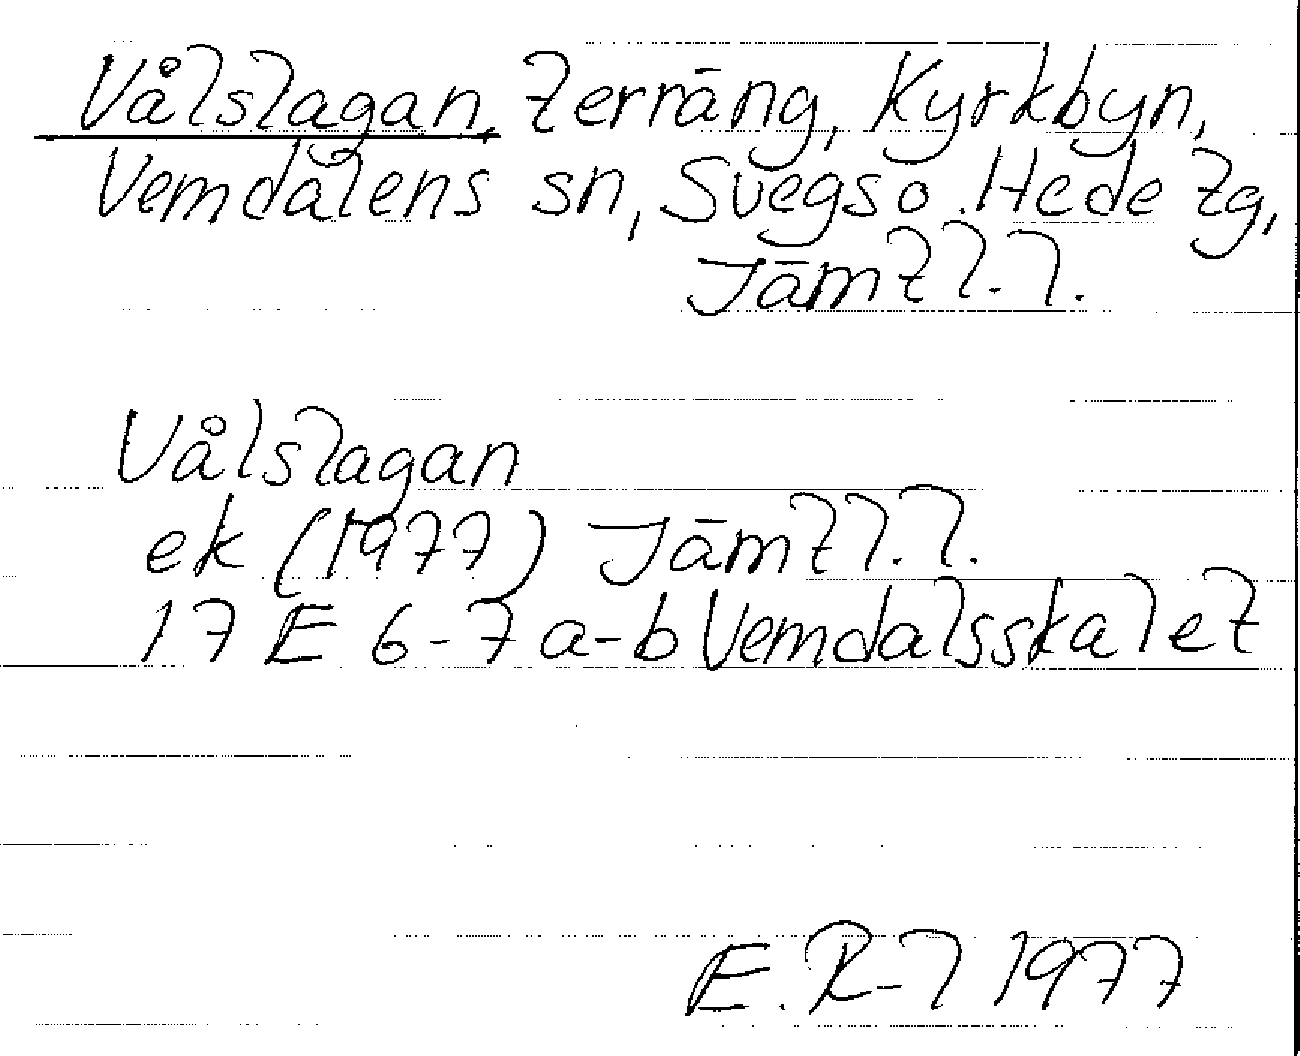 Vålslagan, terräng, Kyrkbyn,
Vemdalens sn, Svegs o. Hede tg,
Jämtl. l.
Vålslagan
ek (1977) Jämtl. l.
17 E 6-7 a-b Vemdalsskalet
E. R-l 1977